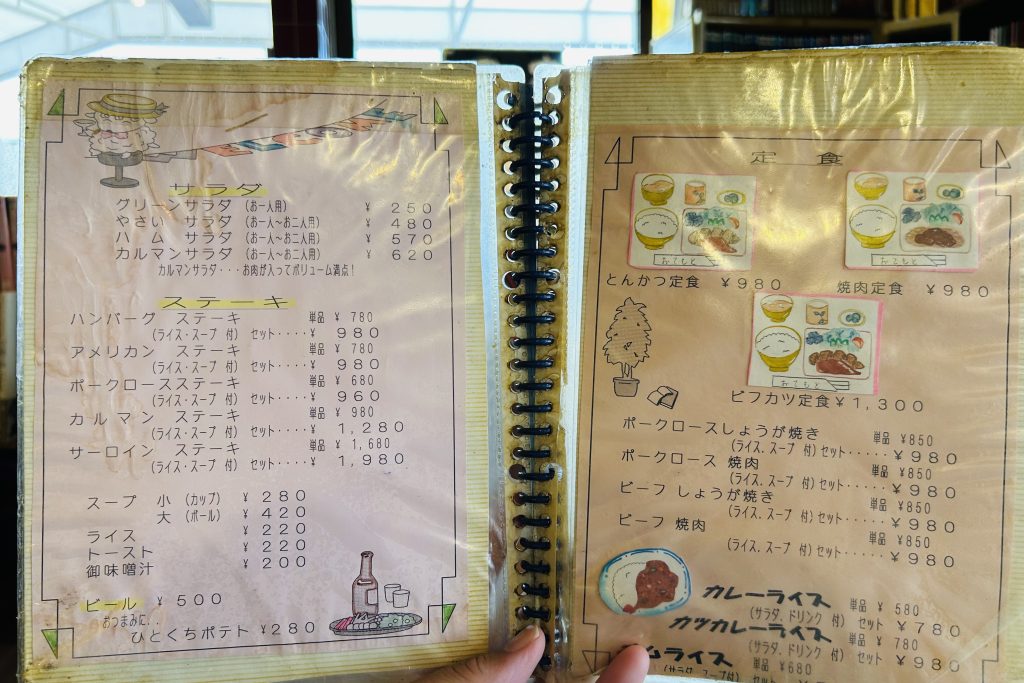 サラダ
グリーンサラダ (お一人用) ¥ 250
やさい サラダ (お一人〜お二人用) ¥ 480
ハム サラダ (お一人〜お二人用) ¥ 570
カルマンサラダ (お一人〜お二人用) ¥ 620
カルマンサラダ・・・お肉が入ってボリューム満点!
ステーキ
ハンバーグ ステーキ 単品 ¥ 780
(ライス・スープ 付) セット・・・・¥ 980
アメリカン ステーキ 単品 ¥ 780
(ライス・スープ 付) セット・・・・¥ 980
ポークロースステーキ 単品 ¥ 680
(ライス・スープ 付) セット・・・・¥ 960
カルマン ステーキ 単品 ¥ 980
(ライス・スープ 付) セット・・・・¥ 1,280
サーロイン ステーキ 単品 ¥ 1,680
(ライス・スープ 付) セット・・・・¥ 1,980
スープ 小 (カップ) ¥ 280
大 (ボール) ¥ 420
ライス ¥ 220
トースト ¥ 220
御味噌汁 ¥ 200
ビール ¥ 500
おつまみに..
ひとくちポテト ¥280
定 食
おてもと
おてもと
とんかつ定食 ¥980
焼肉定食 ¥980
おてもと
ビフカツ定食¥1,300
ポークロースしょうが焼き 単品 ¥850
(ライス、スープ 付)セット・・・・・¥980
ポークロース 焼肉 単品 ¥850
(ライス、スープ 付)セット・・・・・¥980
ビーフ しょうが焼き 単品 ¥850
(ライス、スープ 付)セット・・・・・¥980
ビーフ 焼肉 単品 ¥850
(ライス、スープ 付)セット・・・・・¥980
カレーライス 単品 ¥ 580
(サラダ、ドリンク 付) セット ¥780
カツカレーライス 単品 ¥ 780
(サラダ、ドリンク 付) セット ¥980
ムライス 単品 ¥680
(サラダ、スープ付) セット ¥980